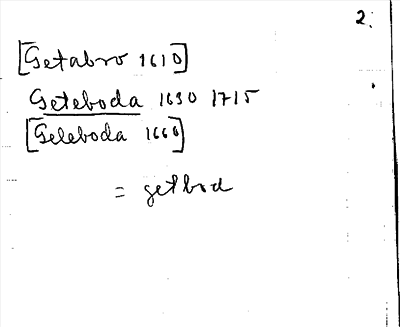 2.
[Getabro 1610]
Geteboda 1690 1715
[Geleboda 1660]
= getbod